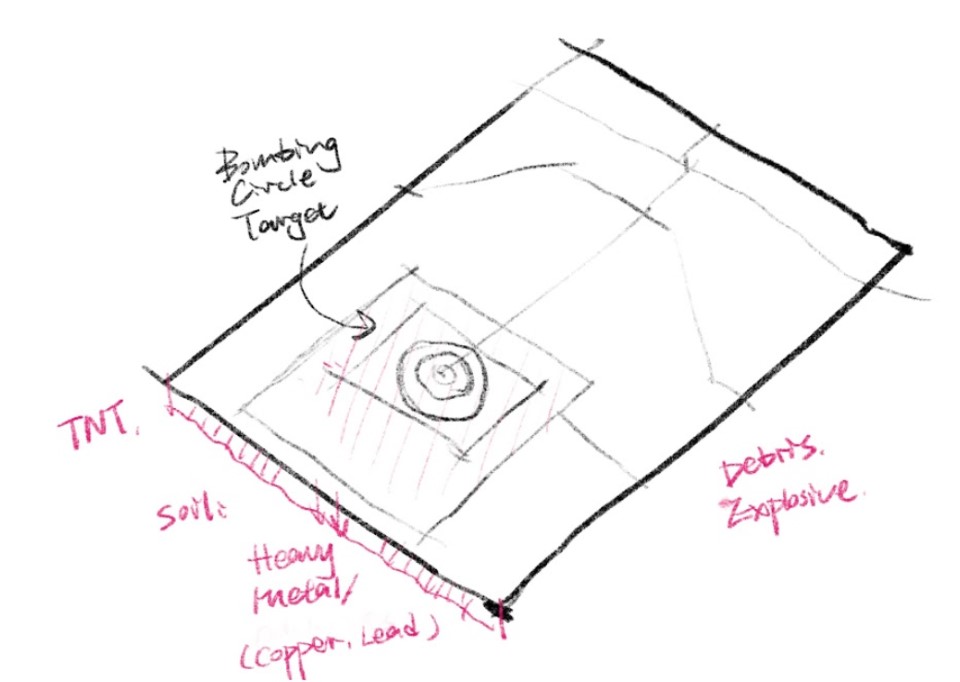 Bombing
Circle
Target
TNT.
Soil:
Heavy
Metal/
(Copper. Lead)
Debris.
Explosive.